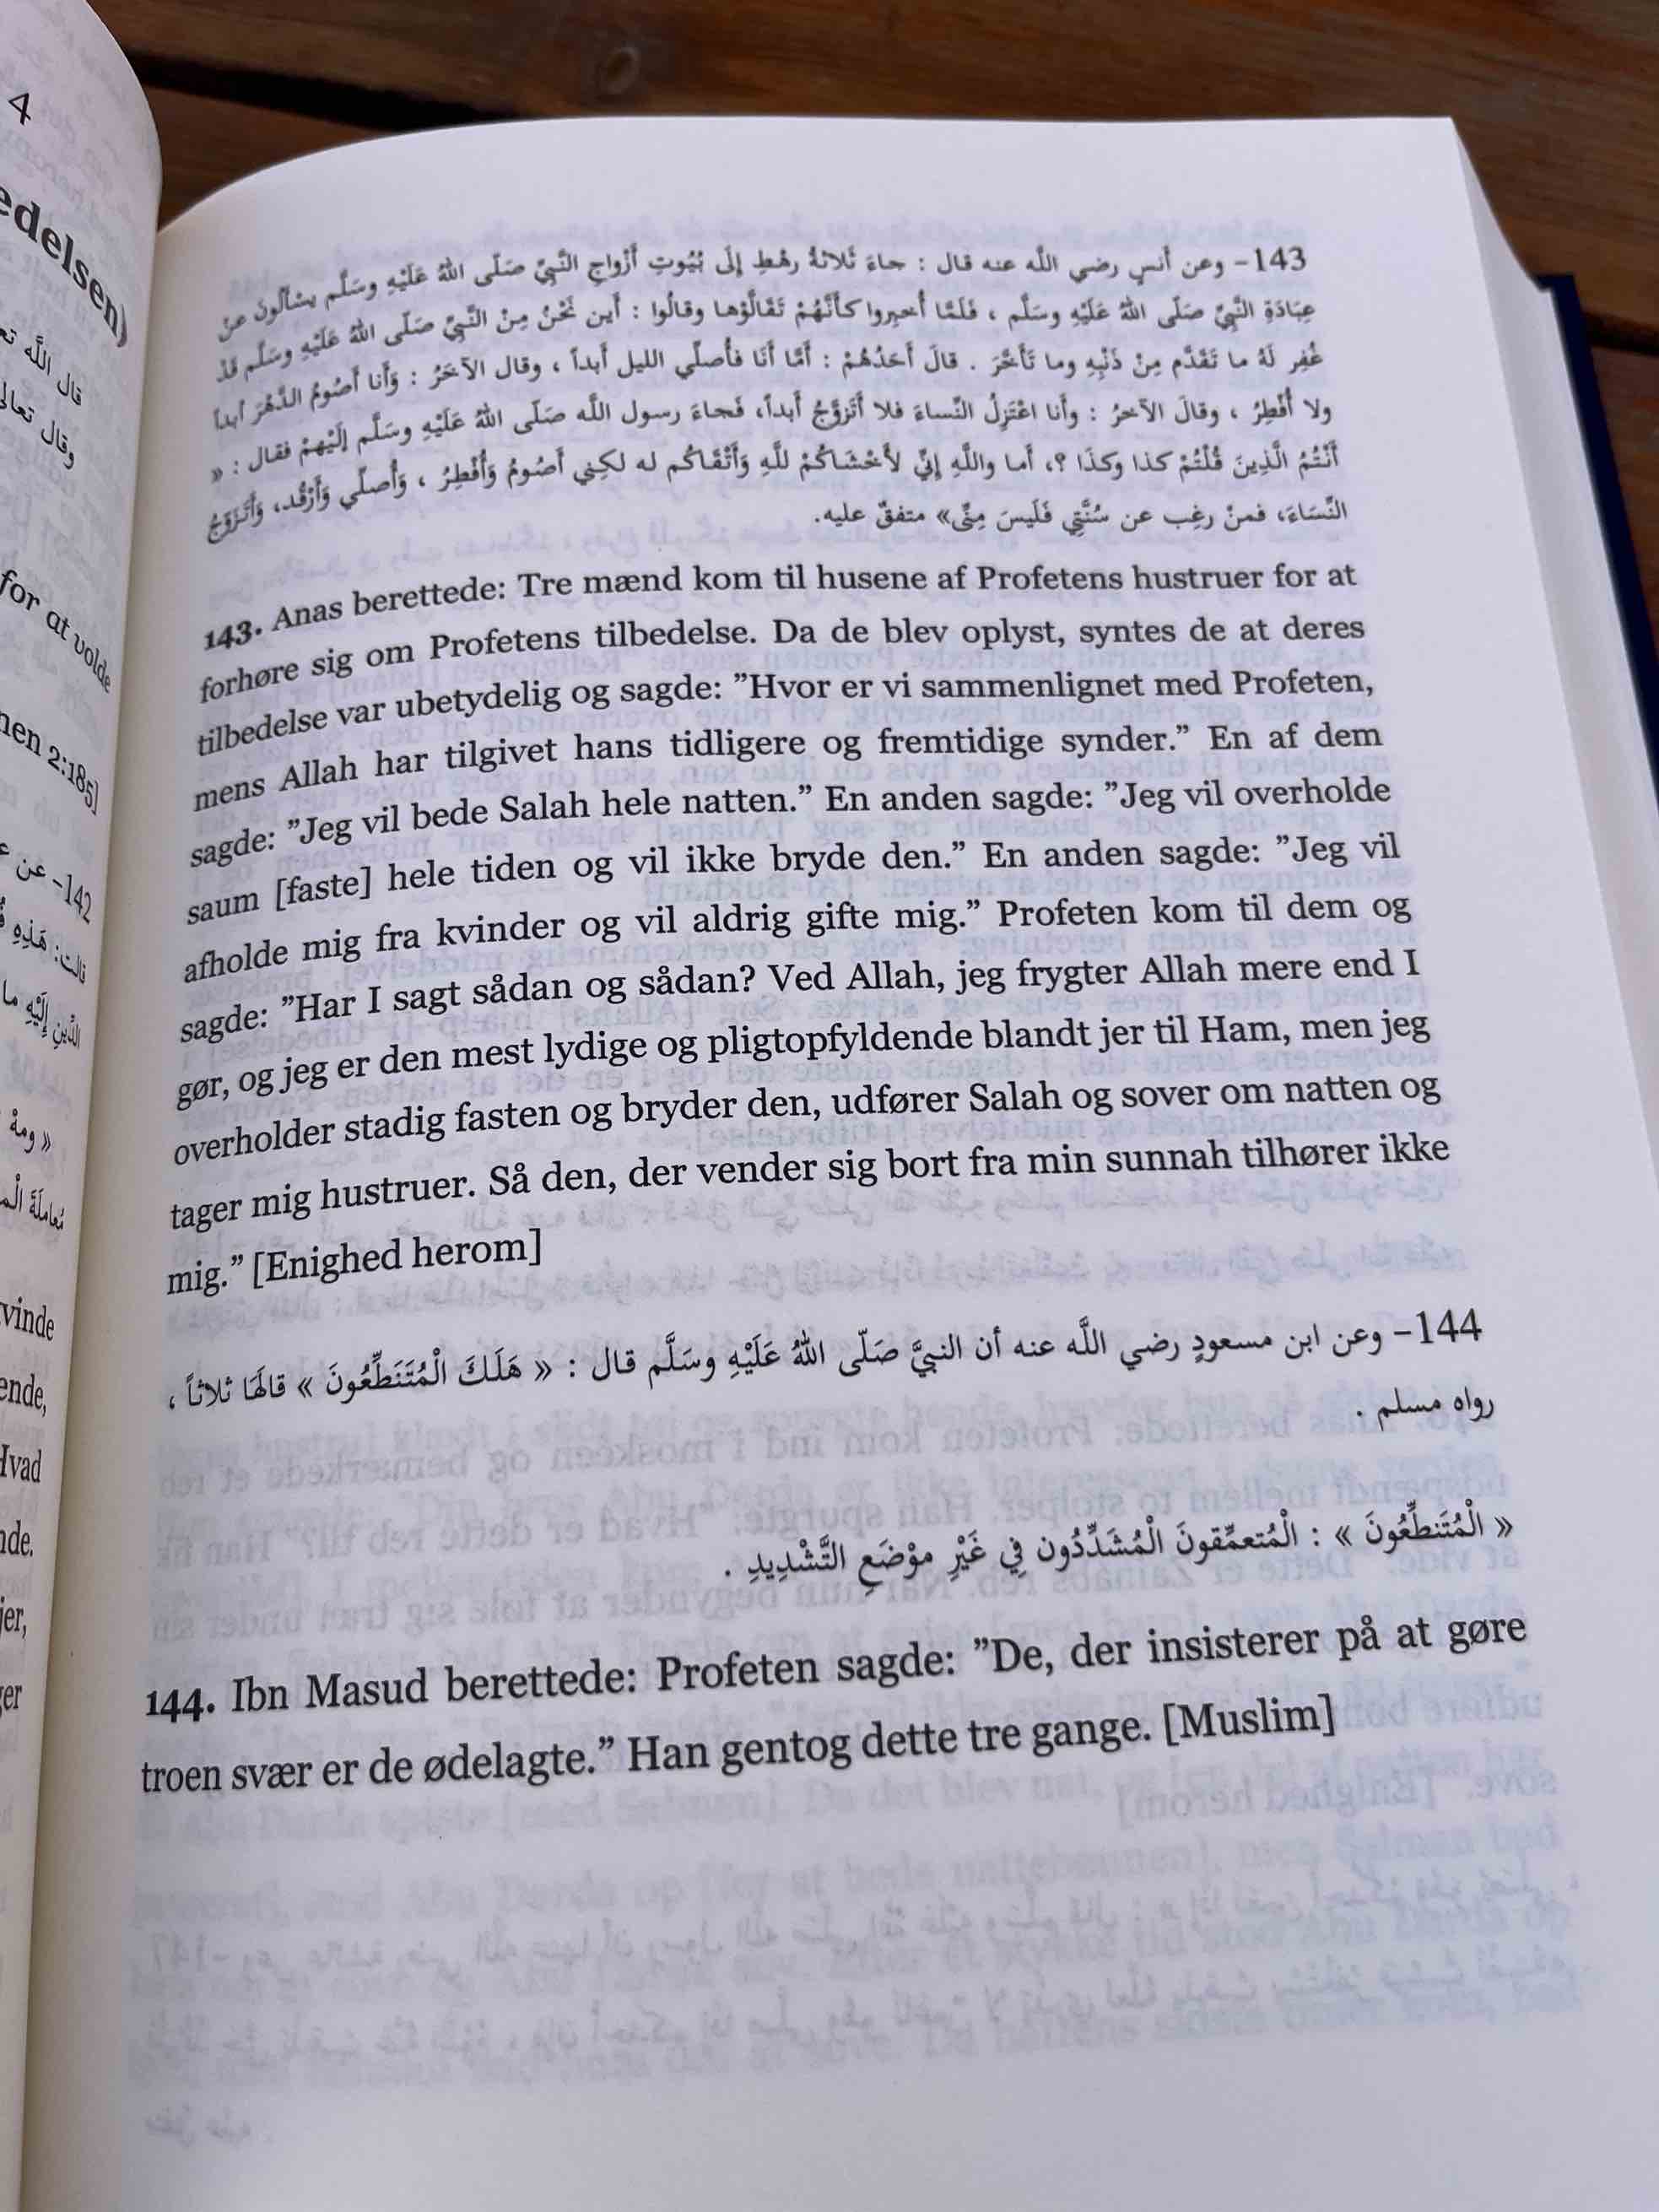 4
edelsen)
قال الله تعا
وقال تعالى
for at volde
nen 2:185]
142- عن ع
قالت: هَذِهِ
الدِّينِ إِلَيْهِ ما
« ومهْ
مُعاملَةَ الْم
vinde
ende,
Hvad
nde.
jer,
ger
143- وعن أنسٍ رضي اللَّه عنه قال : جاءَ ثَلاثةُ رهْطِ إِلَى بُيُوتِ أَزْواجِ النَّبِيِّ صَلّى اللهُ عَلَيْهِ وسَلَّم يسْأَلُونَ عنْ
عِبَادَةِ النَّبِيِّ صَلّى اللهُ عَلَيْهِ وسَلَّم ، فَلَمَّا أُخبِروا كأَنَّهُمْ تَقَالَّوْها وقالُوا : أَين نَحْنُ مِنْ النَّبِيِّ صَلّى اللهُ عَلَيْهِ وسَلَّم قَدْ
غُفِر لَهُ ما تَقَدَّم مِنْ ذَنْبِهِ وما تَأَخَّرَ . قالَ أَحَدُهُمْ : أَمَّا أَنَا فأُصلِّي الليل أَبداً ، وقال الآخَرُ : وَأَنا أَصُومُ الدَّهْرَ أبداً
ولا أُفْطِرُ ، وقالَ الآخرُ : وأَنا اعْتَزِلُ النِّساءَ فلا أَتَزوَّجُ أَبداً، فَجاءَ رسول اللَّه صَلّى اللهُ عَلَيْهِ وسَلَّم إلَيْهمْ فقال : «
أَنْتُمُ الَّذِينَ قُلْتُمْ كذا وكذَا ؟، أَما واللَّهِ إِنِّي لأَخْشَاكُمْ للَّهِ وَأَتْقَاكُم له لكِني أَصُومُ وَأُفْطِرُ ، وَأُصلِّي وَأَرْقُد، وَأَتَزَوّجُ
النِّسَاءَ، فمنْ رغِب عن سُنَّتِي فَلَيسَ مِنِّى» متفقٌ عليه.
143. Anas berettede: Tre mænd kom til husene af Profetens hustruer for at
forhøre sig om Profetens tilbedelse. Da de blev oplyst, syntes de at deres
tilbedelse var ubetydelig og sagde: ”Hvor er vi sammenlignet med Profeten,
mens Allah har tilgivet hans tidligere og fremtidige synder.” En af dem
sagde: ”Jeg vil bede Salah hele natten.” En anden sagde: ”Jeg vil overholde
saum [faste] hele tiden og vil ikke bryde den.” En anden sagde: ”Jeg vil
afholde mig fra kvinder og vil aldrig gifte mig.” Profeten kom til dem og
sagde: ”Har I sagt sådan og sådan? Ved Allah, jeg frygter Allah mere end I
gør, og jeg er den mest lydige og pligtopfyldende blandt jer til Ham, men jeg
overholder stadig fasten og bryder den, udfører Salah og sover om natten og
tager mig hustruer. Så den, der vender sig bort fra min sunnah tilhører ikke
mig.” [Enighed herom]
144- وعن ابن مسعودٍ رضي اللَّه عنه أن النبيَّ صَلّى اللهُ عَلَيْهِ وسَلَّم قال : « هَلَكَ الْمُتَنَطِّعُونَ » قالَهَا ثلاثاً ،
رواه مسلم .
« الْمُتَنطِّعُونَ » : الْمُتعمِّقونَ الْمُشَدِّدُون فِي غَيْرِ موْضَعِ التَّشْدِيدِ .
144. Ibn Masud berettede: Profeten sagde: ”De, der insisterer på at gøre
troen svær er de ødelagte.” Han gentog dette tre gange. [Muslim]